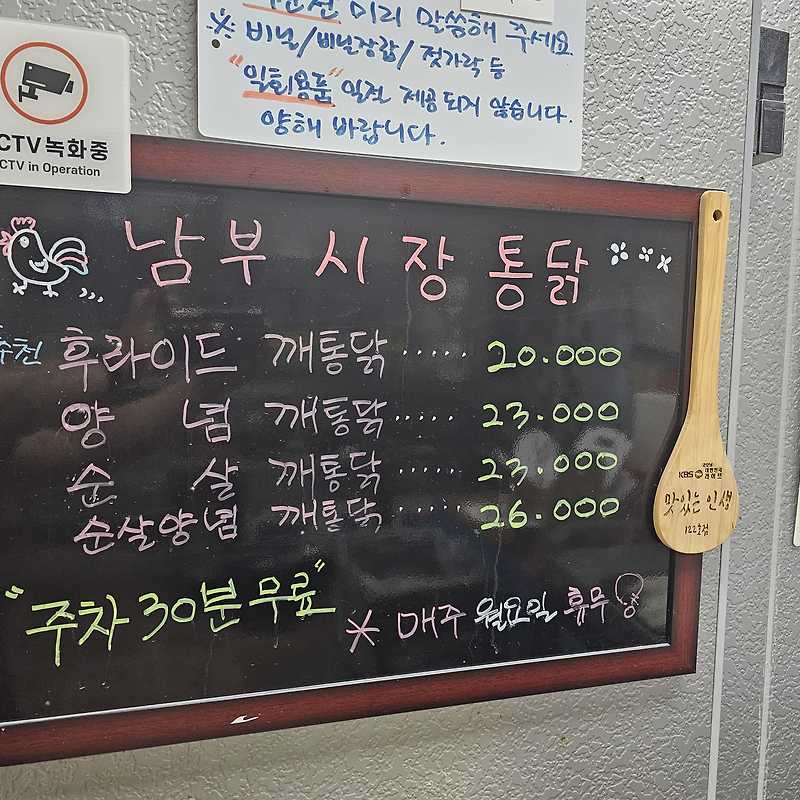 미리 말씀해 주세요
※ 비닐/비닐장갑/젓가락 등
"일회용품" 일절 제공되지 않습니다.
양해 바랍니다.
CTV 녹화중
CTV in Operation
남부시장 통닭
추천 후라이드 깨통닭 ..... 20.000
양념 깨통닭 ..... 23.000
순살 깨통닭 ..... 23.000
순살양념 깨통닭 ..... 26.000
KBS
맛있는 인생
122호점
"주차 30분 무료"
※ 매주 월요일 휴무